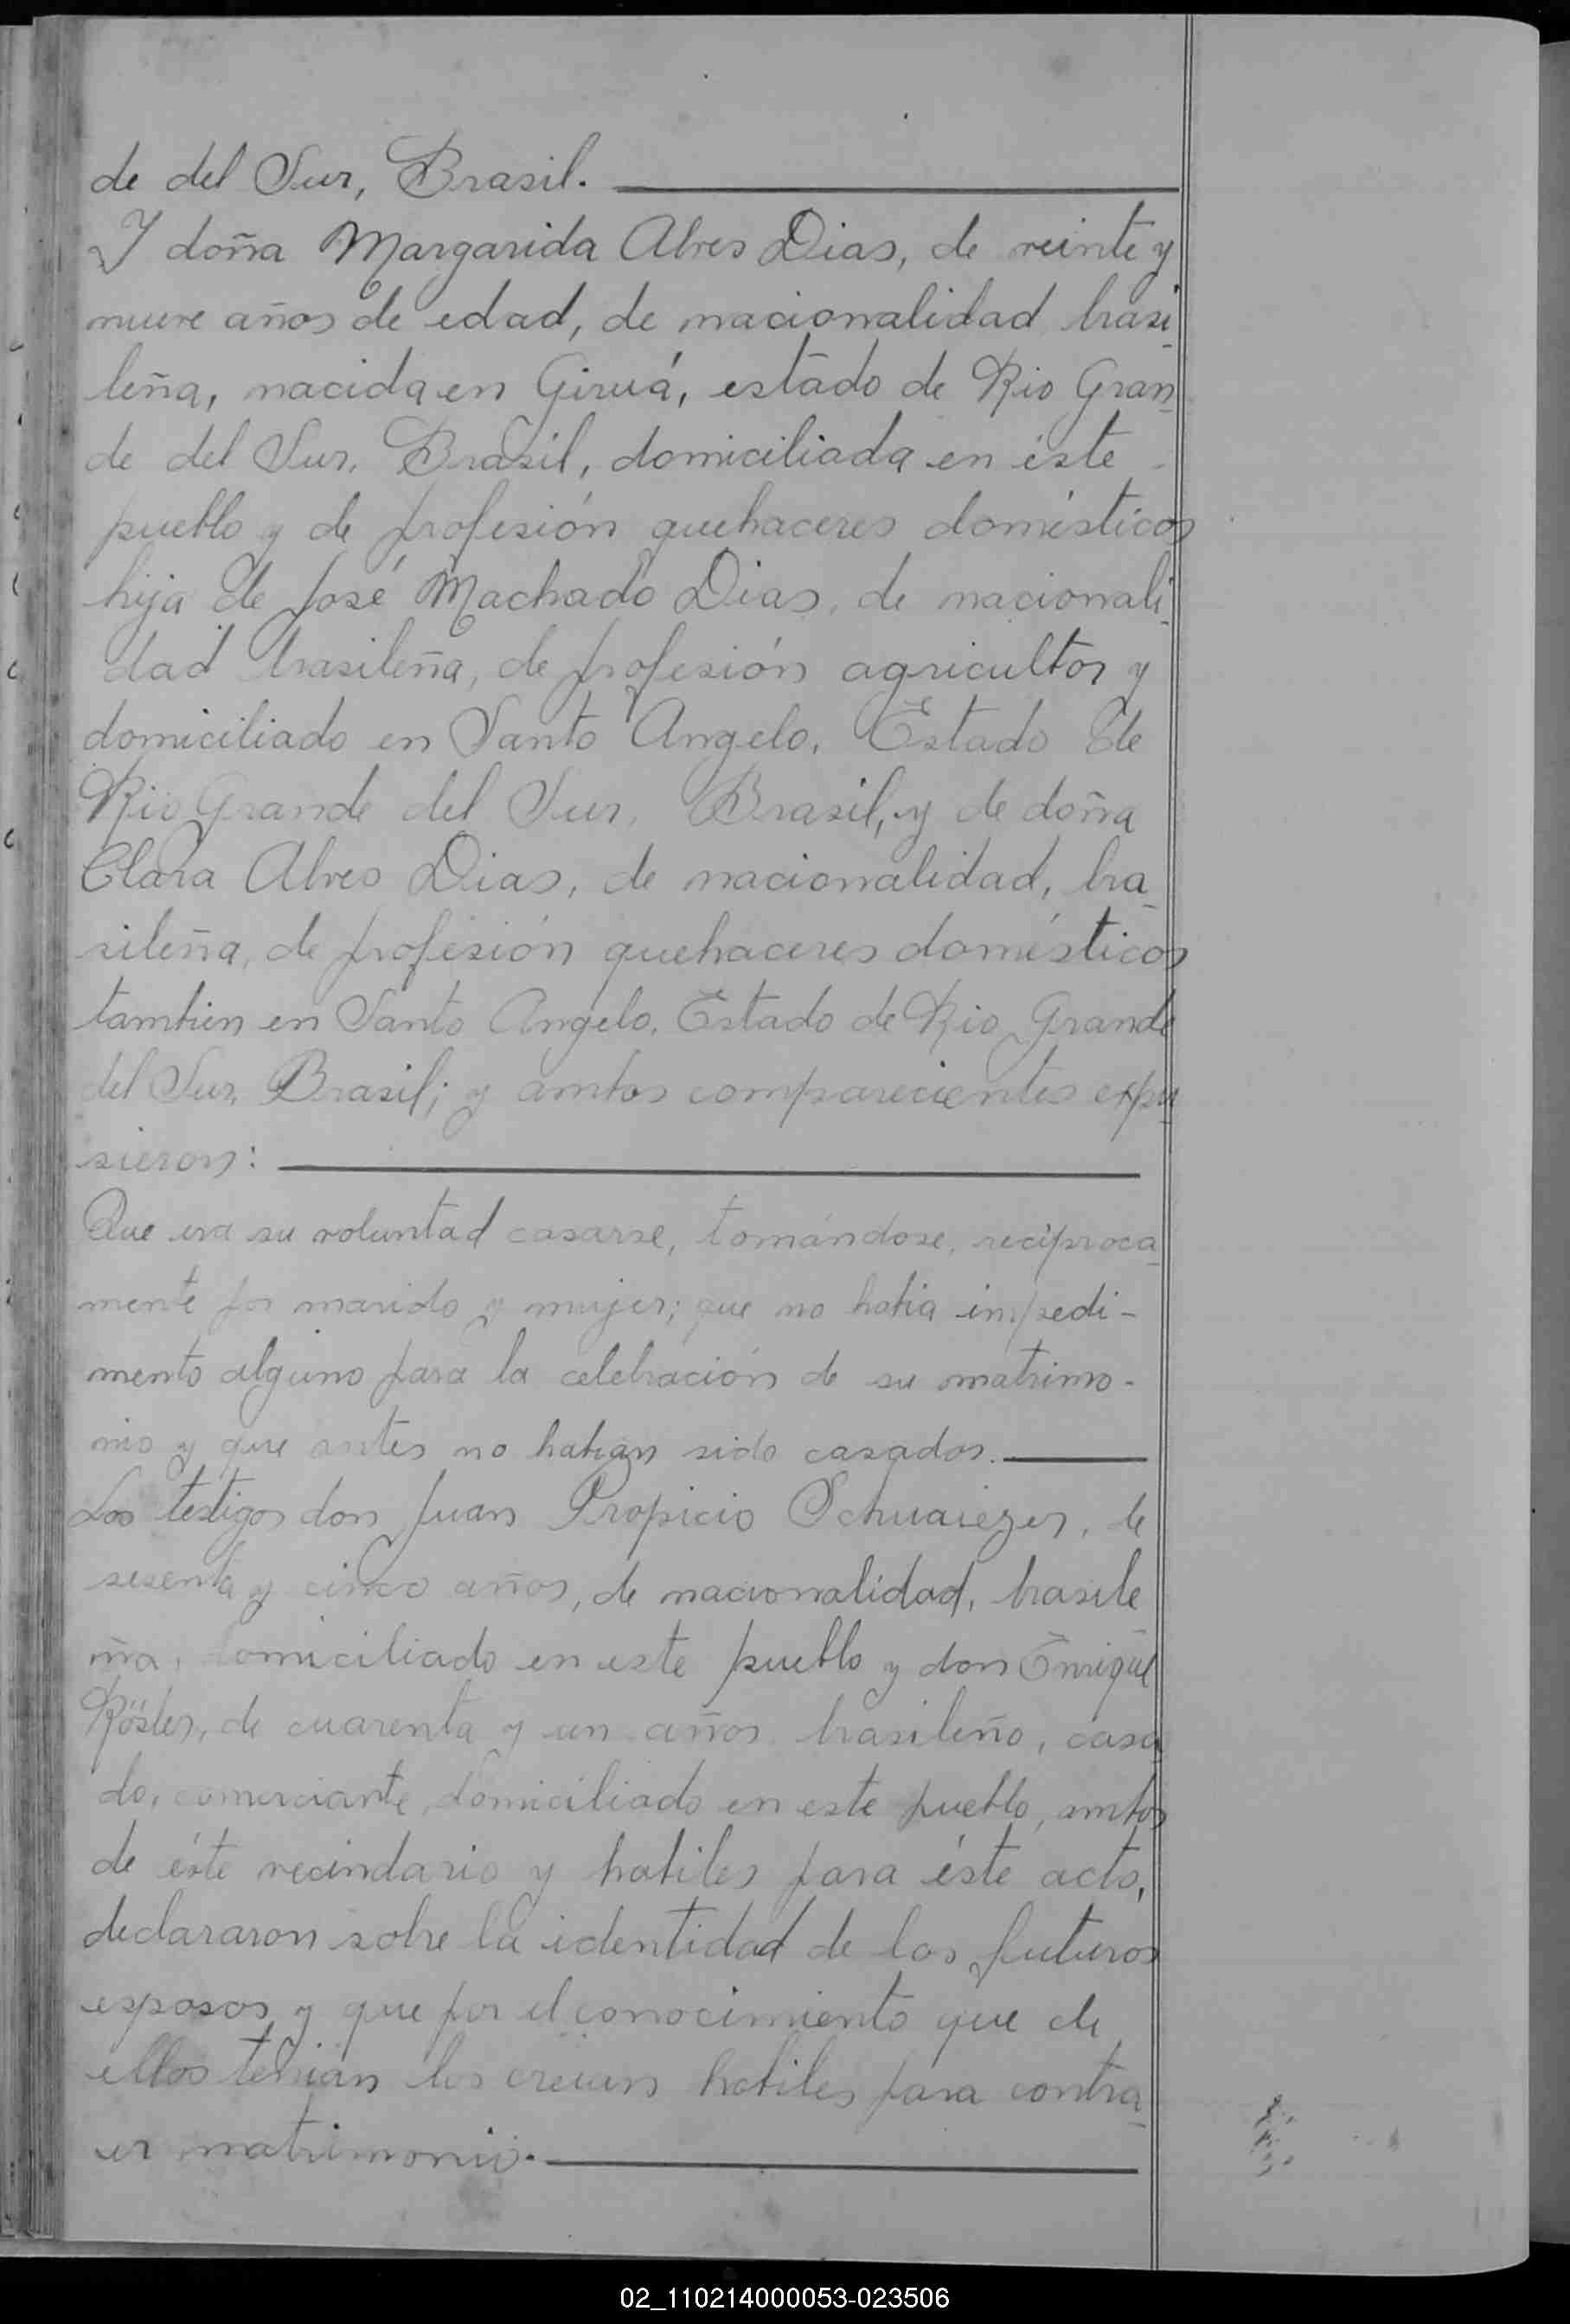 de del Sur, Brasil.
Y doña Margarida Alves Dias, de veinte y
nueve años de edad, de nacionalidad brasi
leña, nacida en Giruá, estado de Rio Gran
de del Sur, Brasil, domiciliada en éste
pueblo y de profesión quehaceres domésticos
hija de José Machado Dias, de nacionali
dad brasileña, de profesión agricultor y
domiciliado en Santo Angelo, Estado de
Rio Grande del Sur, Brasil, y de doña
Clara Alves Dias, de nacionalidad, bra
sileña, de profesión quehaceres domésticos
tambien en Santo Angelo, Estado de Rio Grande
del Sur, Brasil; y ambos comparecientes expu
sieron:
Que era su voluntad casarse, tomándose, reciproca
mente por marido y mujer; que no habia impedi-
mento alguno para la celebración de su matrimo-
nio y que antes no habian sido casados.
Los testigos don Juan Propicio Schuaiezer, de
sesenta y cinco años, de nacionalidad, brasile
ña, domiciliado en este pueblo y don Enrique
Röster, de cuarenta y un años, brasileño, casa
do, comerciante, domiciliado en este pueblo, ambos
de éste vecindario y habiles para éste acto,
declararon sobre la identidad de los futuros
esposos y que por el conocimiento que de
ellos tenian los creian habiles para contra
er matrimonio.
02_110214000053-023506